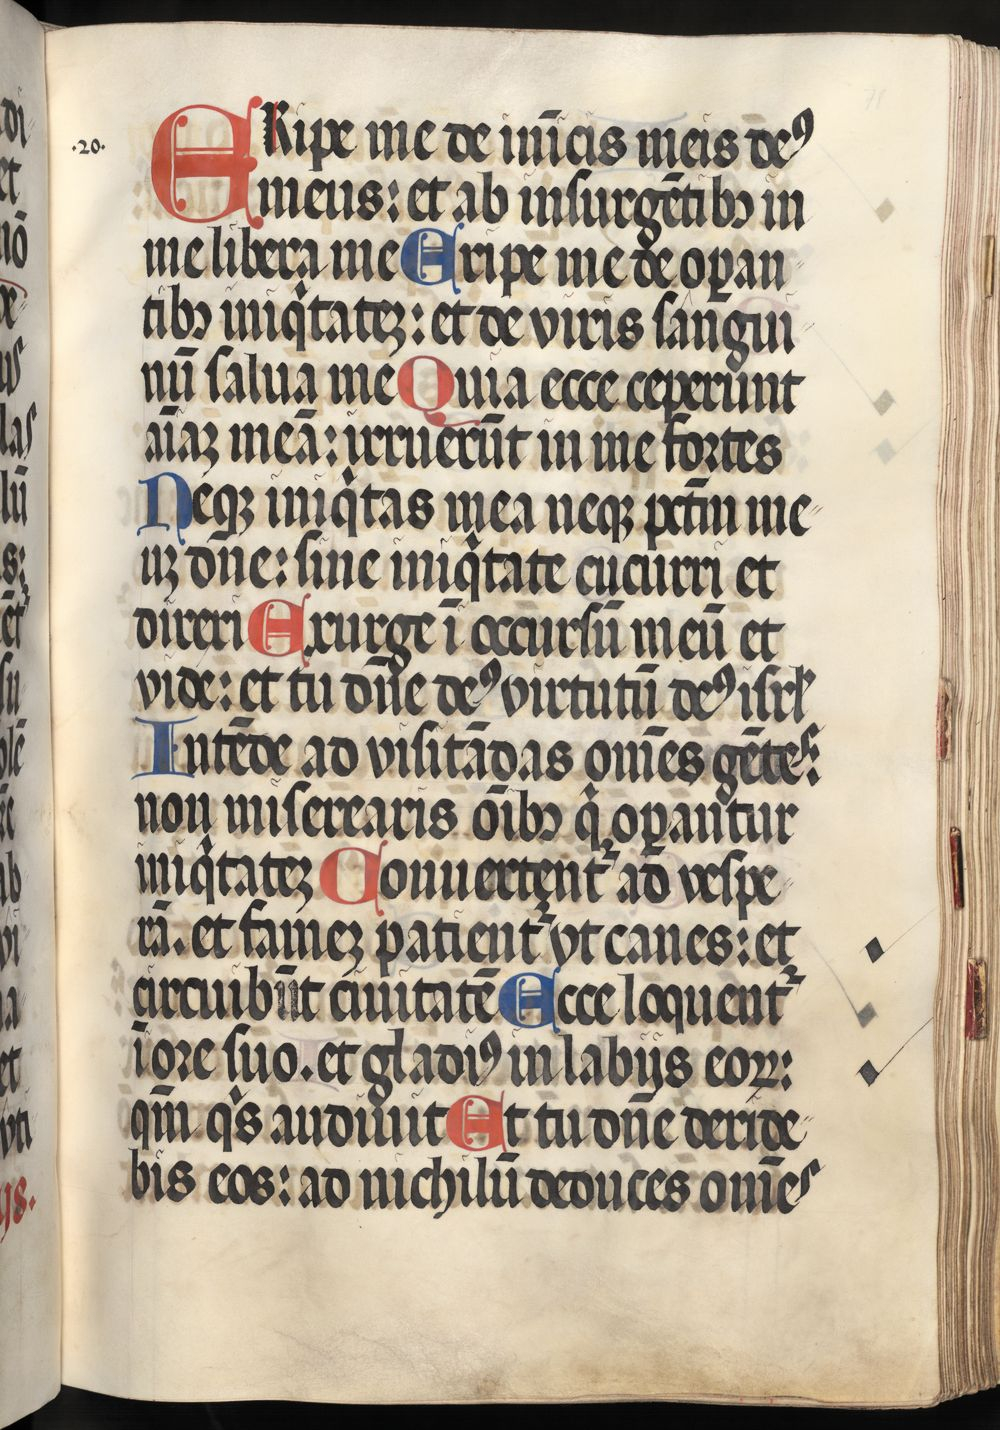 ·20·
ERipe me de inīcis meis de⁹
meus: et ab insurgētibꝫ in
me libera me Eripe me de oꝑan
tibꝫ iniq̇tateꝫ: et de viris sangui
nū salua me Quia ecce ceperūnt
aīaꝫ meā: irruerūt in me fortes
Neqꝫ iniq̇tas mea neqꝫ pctm̄ me
uꝫ dn̄e: sine iniq̇tate cucurri et
direxi Exurge ī occursū meū et
vide: et tu dn̄e de⁹ virtutū de⁹ isrl
Intēde ad visitādas om̄es gētes:
non miserearis ōibꝫ q̇ oꝑantur
iniq̇tateꝫ Conuertent᷑ ad vespe
rā. et fameꝫ patient᷑ vt canes: et
circuibūt ciuitatē Ecce loquent᷑
ī ore suo. et gladi⁹ in labijs eoꝝ:
qm̄ q̇s audiuit Et tu dn̄e deride
bis eos: ad nichilū deduces om̄es